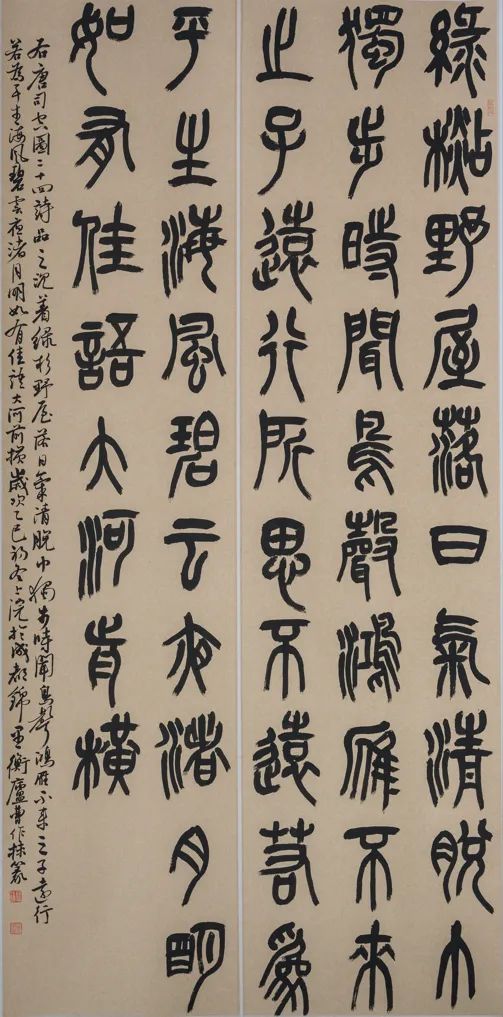 綠杉野屋落日氣清脫巾
獨步時聞鳥聲鴻雁不來
之子遠行所思不遠若為
平生海風碧云夜渚月明
如有佳語大河前橫
右唐司空圖二十四詩品之沉著綠杉野屋落日氣清脫巾獨步時聞鳥聲鴻雁不來之子遠行
若為平生海風碧雲夜渚月明如有佳語大河前橫歲次乙巳初冬上浣於成都錦里衡廬曹作篆